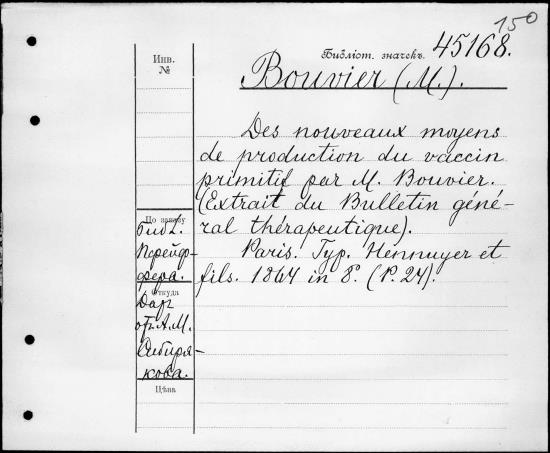 150
Библіот. значекъ. 45168.
Инв.
№
Bouvier (M.).
Des nouveaux moyens
de production du vaccin
primitif par M. Bouvier.
(Extrait du Bulletin géné-
ral thérapeutique).
Paris. Typ. Hennuyer et
fils. 1864 in 8º. (P. 24).
По заказу
библ.
Пфейф-
фера.
Откуда
Дар
от А.М.
Сибиря-
кова.
Цѣна